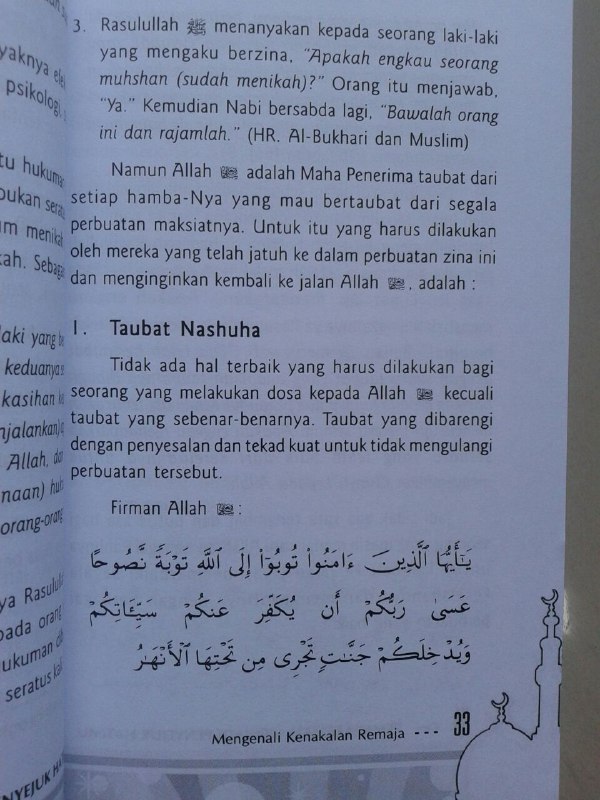 yaknya
psikologi,
tu hukuma
pukan
um menik
kah. Sebag
laki yang
keduanya
kasihan
njalankan)
Allah, da
naan)
orang-orang
ya Rasulul
pada orang
hukuman
seratus kal
NYEJUK HA
3. Rasulullah ﷺ menanyakan kepada seorang laki-laki
yang mengaku berzina, “Apakah engkau seorang
muhshan (sudah menikah)?” Orang itu menjawab,
“Ya.” Kemudian Nabi bersabda lagi, “Bawalah orang
ini dan rajamlah.” (HR. Al-Bukhari dan Muslim)
Namun Allah ﷻ adalah Maha Penerima taubat dari
setiap hamba-Nya yang mau bertaubat dari segala
perbuatan maksiatnya. Untuk itu yang harus dilakukan
oleh mereka yang telah jatuh ke dalam perbuatan zina ini
dan menginginkan kembali ke jalan Allah ﷻ, adalah :
1. Taubat Nashuha
Tidak ada hal terbaik yang harus dilakukan bagi
seorang yang melakukan dosa kepada Allah ﷻ kecuali
taubat yang sebenar-benarnya. Taubat yang dibarengi
dengan penyesalan dan tekad kuat untuk tidak mengulangi
perbuatan tersebut.
Firman Allah ﷻ :
يَٰٓأَيُّهَا ٱلَّذِينَ ءَامَنُوا۟ تُوبُوٓا۟ إِلَى ٱللَّهِ تَوْبَةً نَّصُوحًا
عَسَىٰ رَبُّكُمْ أَن يُكَفِّرَ عَنكُمْ سَيِّـَٔاتِكُمْ
وَيُدْخِلَكُمْ جَنَّٰتٍ تَجْرِى مِن تَحْتِهَا ٱلْأَنْهَٰرُ
Mengenali Kenakalan Remaja --- 33